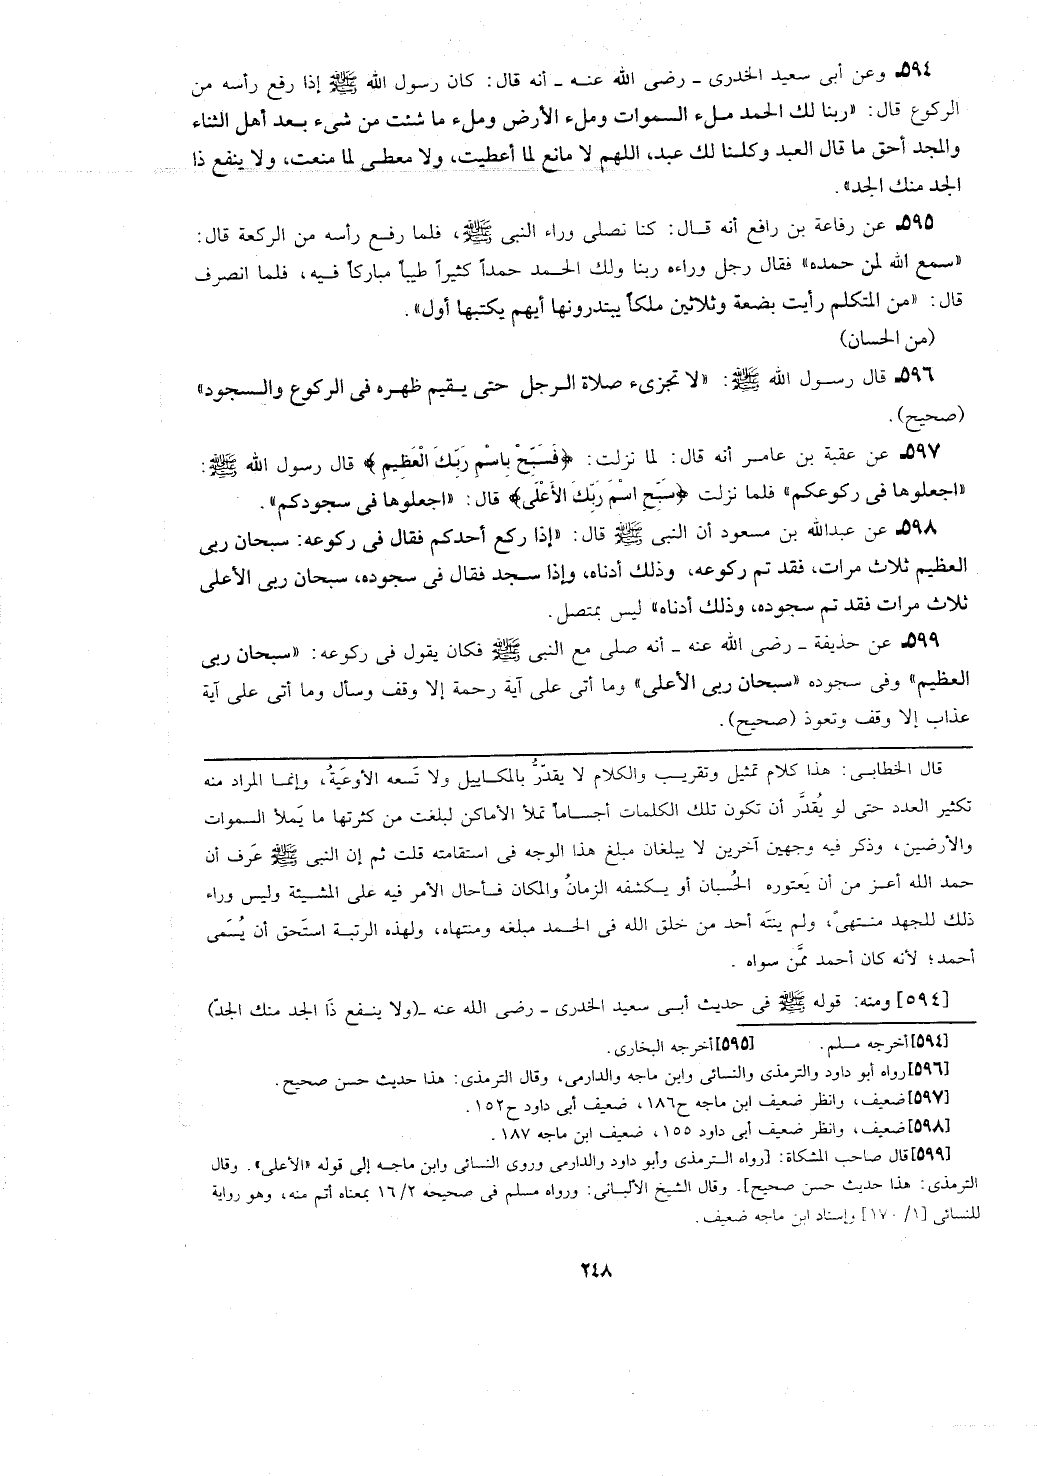 ٥٩٤ـ وعن أبى سعيد الخدرى ـ رضى الله عنـه ـ أنه قال: كان رسول الله ﷺ إذا رفع رأسه من
الركوع قال: «ربنا لك الحمد مـلء السـموات وملء الأرض وملء ما شئت من شىء بـعد أهل الثناء
والمجد أحق ما قال العبد وكلـنا لك عبد، اللهم لا مانع لما أعطيت، ولا معطـى لما منعت، ولا ينفع ذا
الجد منك الجد».
٥٩٥ـ عن رفاعة بن رافع أنه قـال: كنا نصلى وراء النبى ﷺ، فلما رفـع رأسه من الركعة قال:
«سمع الله لمن حمده» فقال رجل وراءه ربنا ولك الحـمد حمداً كثيراً طيباً مباركاً فـيه، فلما انصرف
قال: «من المتكلم رأيت بضعة وثلاثين ملكاً يبتدرونها أيهم يكتبها أول».
(من الحسان)
٥٩٦ـ قال رسـول الله ﷺ: «لا تجزىء صلاة الـرجل حتى يـقيم ظهـره فى الركوع والـسجود»
(صحيح).
٥٩٧ـ عن عقبة بن عامـر أنه قال: لما نزلـت: ﴿فَسَبِّحْ بِاسْمِ رَبِّكَ الْعَظِيمِ﴾ قال رسول الله ﷺ:
«اجعلوها فى ركوعكم» فلما نزلت ﴿سَبِّحِ اسْمَ رَبِّكَ الأَعْلَى﴾ قال: «اجعلوها فى سجودكم».
٥٩٨ـ عن عبدالله بن مسعود أن النبى ﷺ قال: «إذا ركع أحدكم فقال فى ركوعه: سبحان ربى
العظيم ثلاث مرات، فقد تم ركوعه، وذلك أدناه، وإذا سـجد فقال فى سجوده، سبحان ربى الأعلى
ثلاث مرات فقد تم سجوده، وذلك أدناه» ليس بمتصل.
٥٩٩ـ عن حذيفة ـ رضى الله عنه ـ أنه صلى مع النبى ﷺ فكان يقول فى ركوعه: «سبحان ربى
العظيم» وفى سجوده «سبحان ربى الأعلى» وما أتى على آية رحمة إلا وقف وسأل وما أتى على آية
عذاب إلا وقف وتعوذ (صحيح).
قال الخطابـى: هذا كلام تمثيل وتقريب والكلام لا يقدّرُ بالمكاييل ولا تَسعه الأوعَيَةُ، وإنمـا المراد منه
تكثير العدد حتى لو يُقدَّر أن تكون تلك الكلمات أجسـاماً تملأ الأماكن لبلغت من كثرتها ما يَملأ السـموات
والأرضين، وذكر فيه وجهين آخرين لا يبلغان مبلغ هذا الوجه فى استقامته قلت ثم إن النبى ﷺ عَرف أن
حمد الله أعـز من أن يَعتوره الحُسبان أو يـكشفه الزمانُ والمكان فـأحال الأمر فيه على المشـيئة وليس وراء
ذلك للجهد منـتهىً، ولم ينتَه أحد من خلق الله فى الحـمد مبلغه ومنتهاه، ولهذه الرتبـة استَحق أن يُسَمى
أحمد؛ لأنه كان أحمد ممَّن سواه .
[٥٩٤] ومنه: قوله ﷺ فى حديث أبـى سعيد الخدرى ـ رضى الله عنه ـ(ولا ينـفع ذَا الجد منك الجدّ)
[٥٩٤] أخرجه مـلم. [٥٩٥] أخرجه البخارى.
[٥٩٦] رواه أبو داود والترمذى والنسائى وابن ماجه والدارمى، وقال الترمذى: هذا حديث حسن صحيح.
[٥٩٧] ضعيف، وانظر ضعيف ابن ماجه ح١٨٦، ضعيف أبى داود ح١٥٢.
[٥٩٨] ضعيف، وانظر ضعيف أبى داود ١٥٥، ضعيف ابن ماجه ١٨٧ .
[٥٩٩] قال صاحب المشكاة: [رواه الـترمذى وأبو داود والدارمى وروى النسائى وابن ماجـه إلى قوله «الأعلى». وقال
الترمذى: هذا حديث حسن صحيح]. وقال الشيخ الألبـانى: ورواه مسلم فى صحيحه ١٦/٢ بمعناه أتم منه، وهو رواية
للنسائى [١/ ١٧٠] وإسناد ابن ماجه ضعيف.
٢٤٨